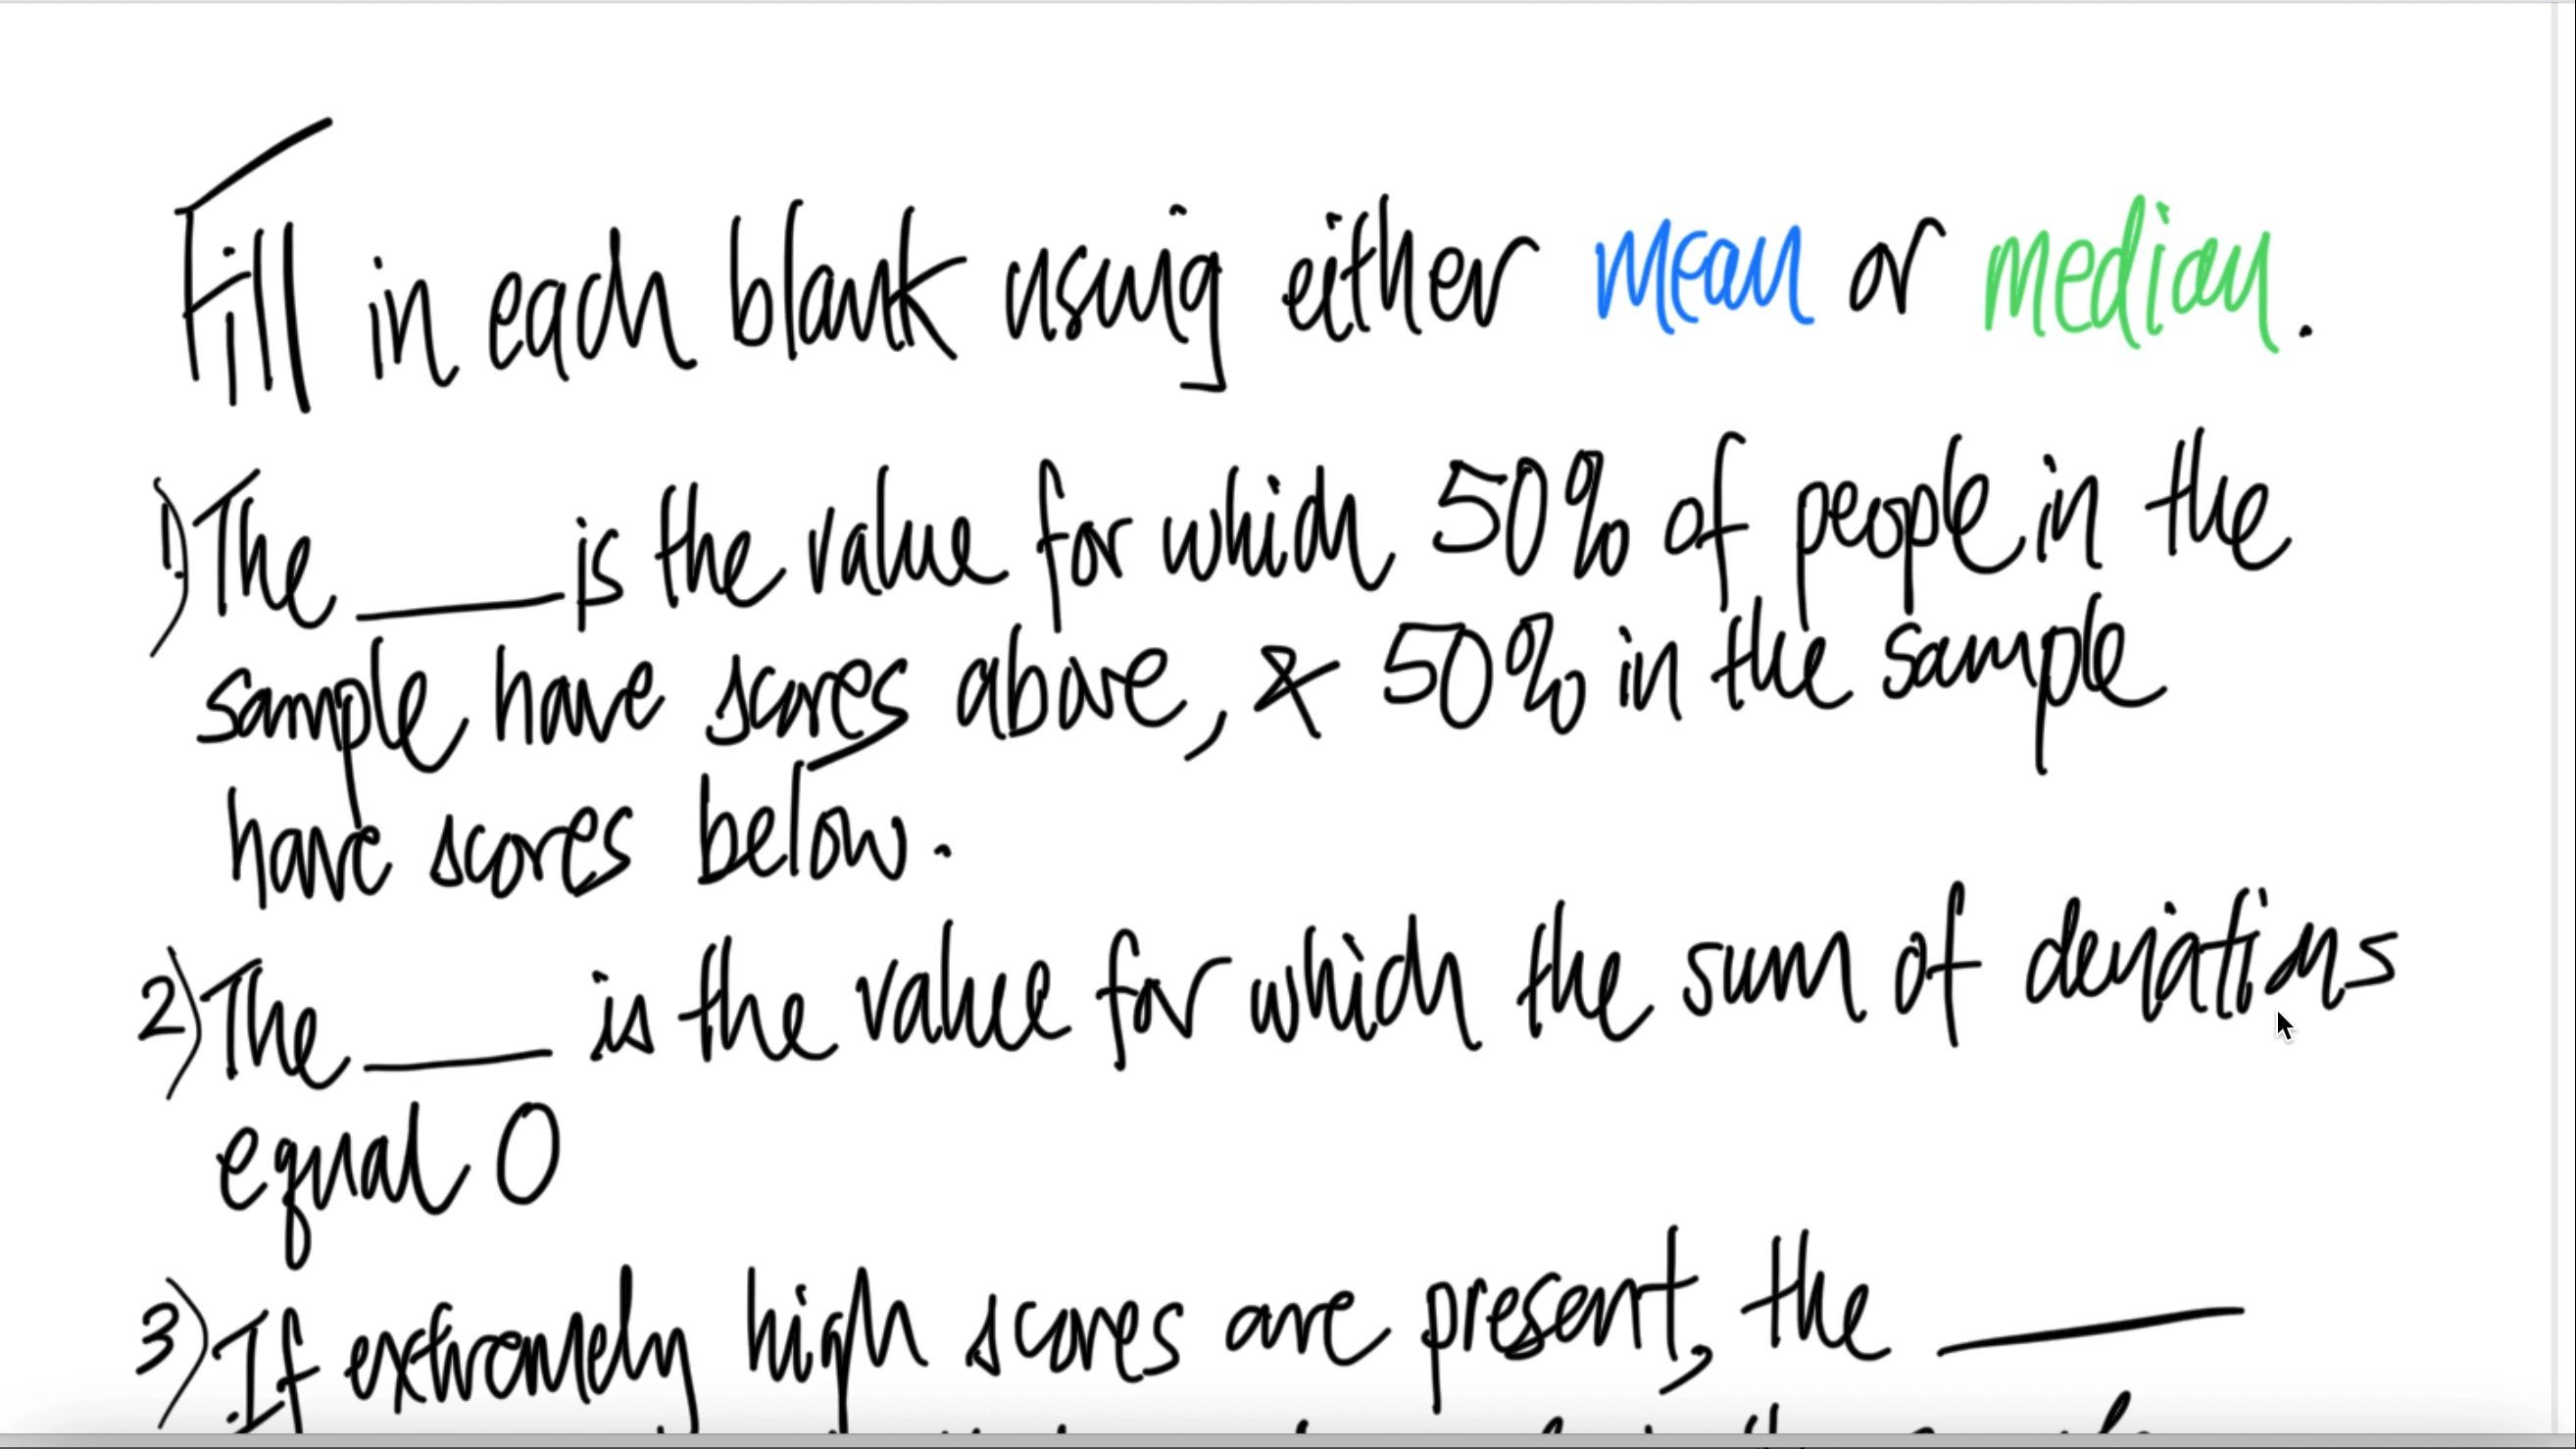 Fill in each blank using either mean or median.
1) The ____ is the value for which 50% of people in the
sample have scores above, & 50% in the sample
have scores below.
2) The ____ is the value for which the sum of deviations
equal 0
3) If extremely high scores are present, the ____